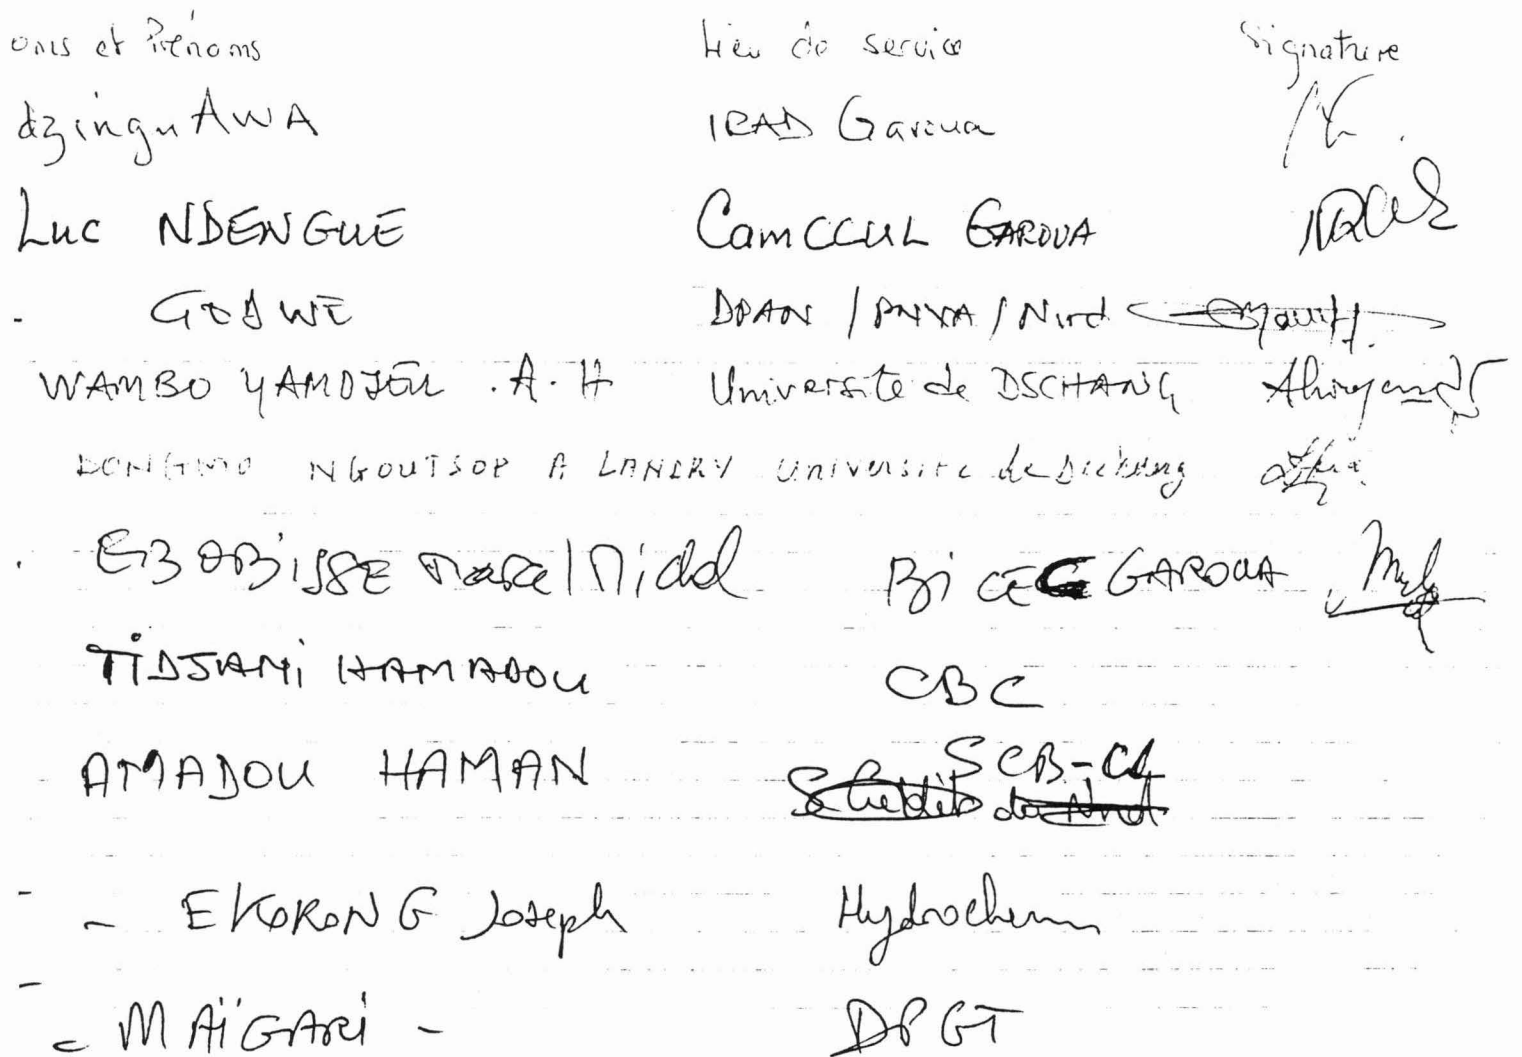 oms et Prénoms Lieu de service Signature
dzingu AWA IRAD Garoua
Luc NDENGUE CamCCUL GAROUA
- GODWE DPAN / PNVA / Nord
WAMBO YAMDJEU .A.H Université de DSCHANG
DONGMO NGOUTSOP A LANDRY Université de Dschang
EBOBISSE Marcel BICEC GAROUA
TIDJANI HAMADOU CBC
AMADOU HAMAN SCB-CL
- EKORONG Joseph Hydrochem
- MAÏGARI - DPGT